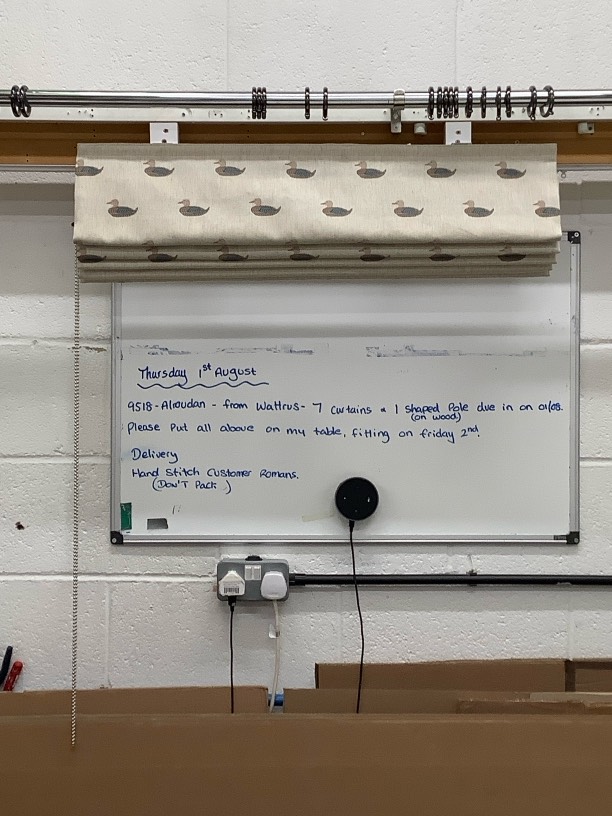 Thursday 1st August
9518 - Alroudan - from Wattrus - 7 Curtains & 1 Shaped Pole due in on 01/08.
(on wood)
Please Put all above on my table, fitting on friday 2nd.
Delivery
Hand Stitch Customer Romans.
(Don'T Pack)